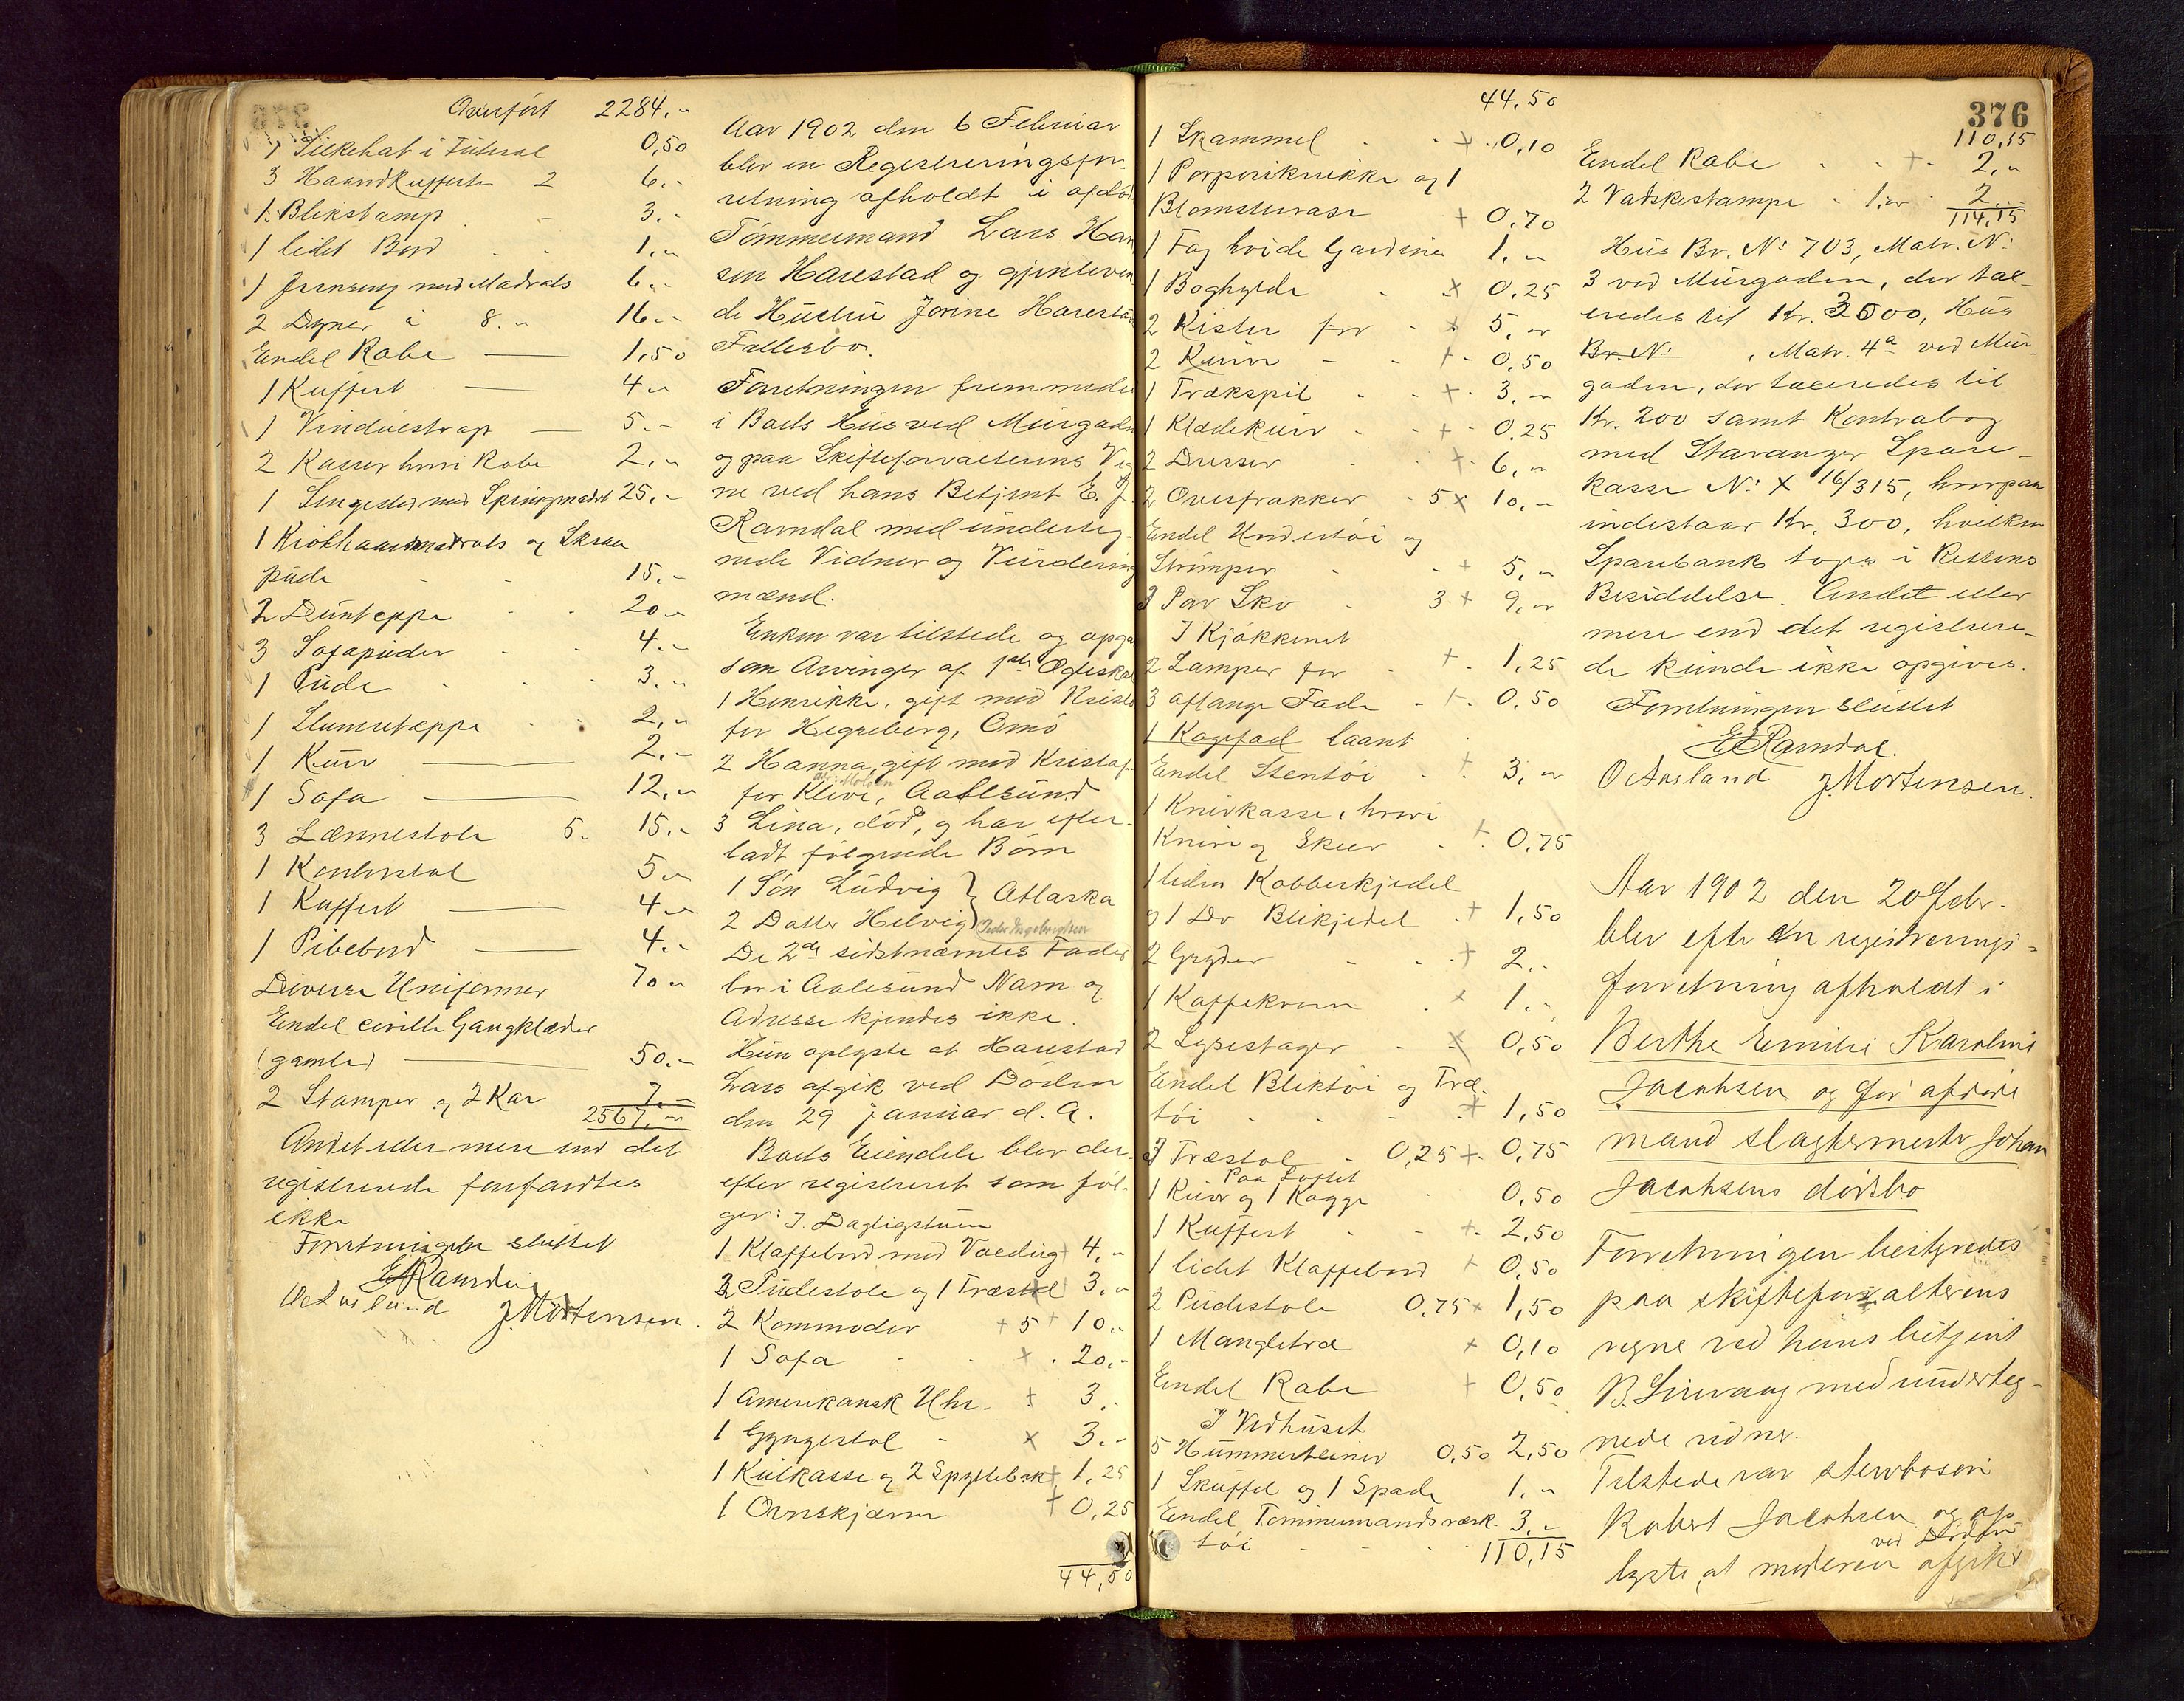 Overført 2284.-
1 Silkehat i Futeral 0,50
3 Haandkufferter 2 6.-
1 Blikstamp - 3.-
1 lidet Bord 1.-
1 Jernseng med Madrats 6.-
2 Dyner à 8.- 16.-
Endel Rabe — 1,50
1 Kuffert — 4.-
1 Vinduestrap — 5.-
2 Kasser hvori Rabe 2.-
1 Sengested med Springmadrt 25.-
1 Krøthaarsmadrats og Skraa
pude 15.-
2 Dunteppe 20.-
3 Sofapuder 4.-
1 Pude 3.-
1 Slumreteppe 2.-
1 Kurv — 2.-
1 Sofa — 12.-
3 Lænnestole 5. 15.-
1 Kontorstol 5.-
1 Kuffert — 4.-
1 Pibebord — 4.-
Diverse Uniformer 70.-
Endel civille Gangklæder
(gamle) — 50.-
2 Stamper og 2 Kar 7.-
2567.-
Andet eller mere end det
registrerede forefandtes
ikke
Forretningen sluttet
E Ramdal
O Ausland J. Mortensen.
Aar 1902 den 6 Februar
blev en Registreringsfor-
retning afholdt i afdøde
Tømmermand Lars Han
sen Harestad og gjenleven
de Hustru Jorine Harestad
Fællesbo.
Forretningen fremmedes
i Boets Hus ved Murgaden
og paa Skifteforvalterens Veg
ne ved hans Betjent E. J.
Ramdal med underteg-
nede Vidner og Vurderings
mænd.
Enken var tilstede og opgav
som Arvinger af 1ste Ægteskab
1 Henrikke, gift med Kristo
fer Hegreberg, Omø
2 Hanna, gift med Kristof-
fer Kleve, Aalesund
3 Lina, død, og har efter-
ladt følgende Børn
1 Søn Ludvig } Atlaska
2 Datter Helvig Peder Ingebrigtsen
De 2de sidstnæmtes Fader
bor i Aalesund Navn og
Adresse kjendes ikke.
Hun oplyste at Harestad
Lars afgik ved Døden
den 29 Januar d. A.
Boets Eiendele blev der-
efter registreret som føl-
ger: I. Dagligstuen
1 Klaffebord med Voxdug + 4.-
3 Pudestole og 1 Træstol + 3.-
2 Kommoder + 5 + 10.-
1 Sofa - x . 20.-
1 Amerikansk Uhr. + 3.-
1 Gyngestol - x 3.-
1 Kulkasse og 2 Spyttebak + 1,25
1 Ovnskjærm + 0,25
44,50
376
44,50
1 Skammel + 0,10
1 Porperikrukke og 1
Blomstervase + 0,70
1 Fag hvide Gardiner 1.-
1 Boghylde x 0,25
2 Kister for x 5.-
2 Kurve + 0,50
1 Trækspil + 3.-
1 Klædekurv + 0,25
2 Dresser + 6.-
2 Overfrakker 5 x 10.-
Endel Undertøi og
Strømper + 5.-
3 Par Sko 3 + 9.-
I Kjøkkenet
2 Lamper for + 1,25
3 aflange Fade + 0,50
1 Kagefad laant
Endel Stentøi + 3.-
1 Knivkasse, hvori
Knive og Skeer + 0,75
1 liden Kobberkjedel
og 1 Do Blikjedel + 1,50
2 Gryder + 2.-
1 Kaffekvern x 1.-
2 Lysestager x 0,50
Endel Bliktøi og Træ-
tøi + 1,50
3 Træstole 0,25 + 0,75
Paa Loftet
1 Kurv og 1 Kagge 0,50
1 Kuffert + 2,50
1 lidet Klaffebord + 0,50
2 Pudestole 0,75 x 1,50
1 Mangletræ x 0,10
Endel Rabe + 0,50
I Vedhuset
5 Hummerteiner 0,50 2,50
1 Skuffel og 1 Spade 1.-
Endel Tømmermandsværk- 3.-
tøi 110,15
110,15
Endel Rabe + 2.-
2 Vadskestampe 1.- 2.-
114,15
Hus Br. No 703, Matr. No
3 ved Murgaden, der tax-
eredes til Kr. 3500, Hus
Br. No , Matr. 4a ved Mur-
gaden, der taxeredes til
Kr. 200 samt Kontrabog
med Stavanger Spare-
kasse No X 16/315, hvorpaa
indestaar Kr. 300, hvilken
Sparebank toges i Rettens
Besiddelse. Andet eller
mere end det registrere-
de kunde ikke opgives.
Forretningen sluttet
E Ramdal.
O Ausland J. Mortensen.
Aar 1902 den 20 Febr.
blev efter en registrerings-
forretning afholdt i
Berthe Emilie Karoline
Jacobsen og før afdøde
mand slagtermester Johan
Jacobsens dødsbo
Forretningen bestyredes
paa skifteforvalterens
vegne ved hans betjent
B. Sirevaag med underteg-
nede vidner.
Tilstede var stervbosøn
Robert Jacobsen og op
lyste, at moderen afgik ved Døden